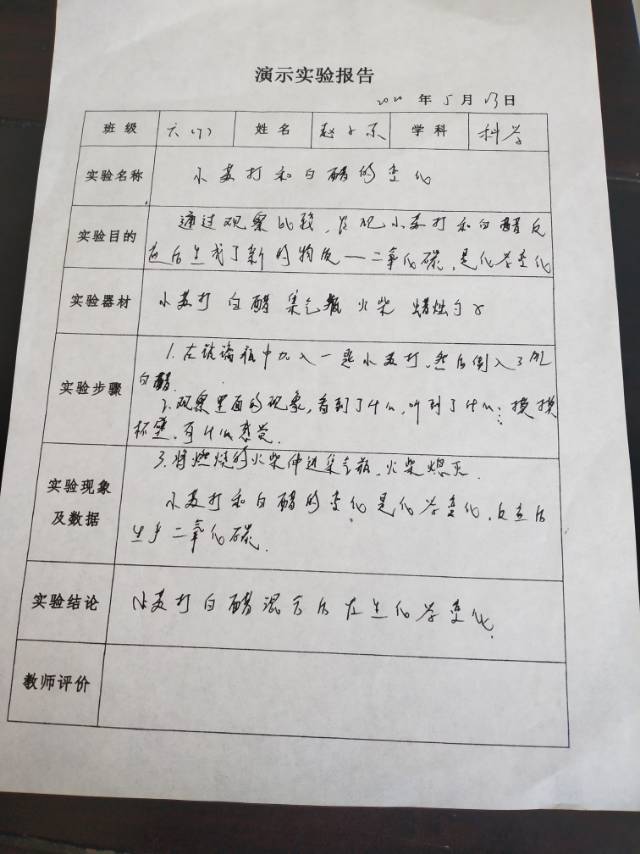 演示实验报告
年 5 月 13 日
班级 六（1） 姓名 赵 学科 科学
实验名称 小苏打和白醋的变化
实验目的 通过观察比较，发现小苏打和白醋反
应后生成了新的物质——二氧化碳，是化学变化
实验器材 小苏打 白醋 集气瓶 火柴 蜡烛
1. 在玻璃瓶中加入一 小苏打，然后倒入3
实验步骤 白醋.
2. 观察里面的现象，看到了什么，听到了什么；摸摸
杯壁，有什么感觉.
3. 将燃烧的火柴伸进集气瓶，火柴熄灭.
实验现象
及数据
小苏打和白醋的变化是化学变化，反应后
生产二氧化碳.
实验结论 小苏打白醋混合后 生化学变化.
教师评价